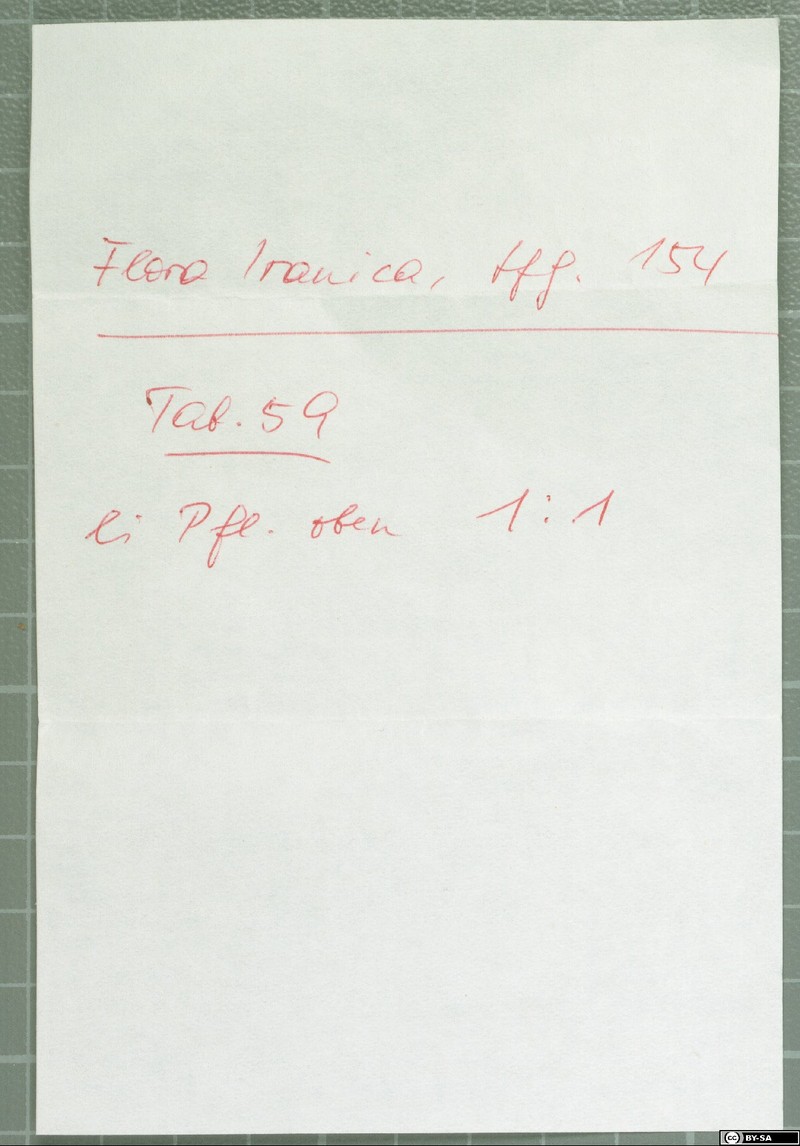 Flora Iranica, Lfg. 154
Tab. 59
li Pfl. oben 1:1
cc BY-SA